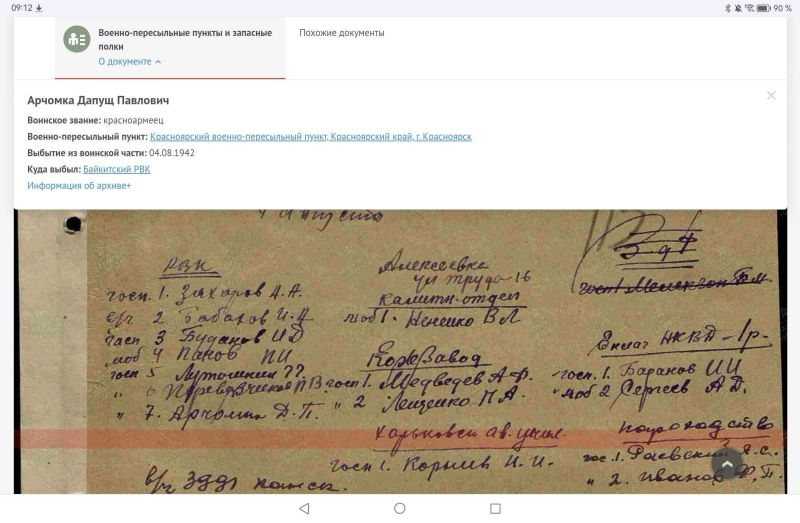 09:12
90 %
Военно-пересыльные пункты и запасные
полки
О документе
Похожие документы
Арчомка Дапущ Павлович
Воинское звание: красноармеец
Военно-пересыльный пункт: Красноярский военно-пересыльный пункт, Красноярский край, г. Красноярск
Выбытие из воинской части: 04.08.1942
Куда выбыл: Байкитский РВК
Информация об архиве+
4 августа
РВК
госп. 1. Захаров А.А.
2 Бабаков И.И
3 Буданов И Д
моб 4 Панов ПИ
госп 5
" 6 П.В.
" 7. Арчомка Д.П.
Алексеевка
ул труда-16
отдел
моб 1. Ненешко В Л
Кожзавод
госп 1. Медведев А.Ф.
" 2 Лещенко П.А.
Харьковск ав. учил.
госп 1. Корнев И. И.
НКВД-1р.
госп. 1. Баранов И И
моб 2 Сергеев А Д.
пароходство
гос. 1. Раевский Я.С.
" 2. Иванов Ф.П.